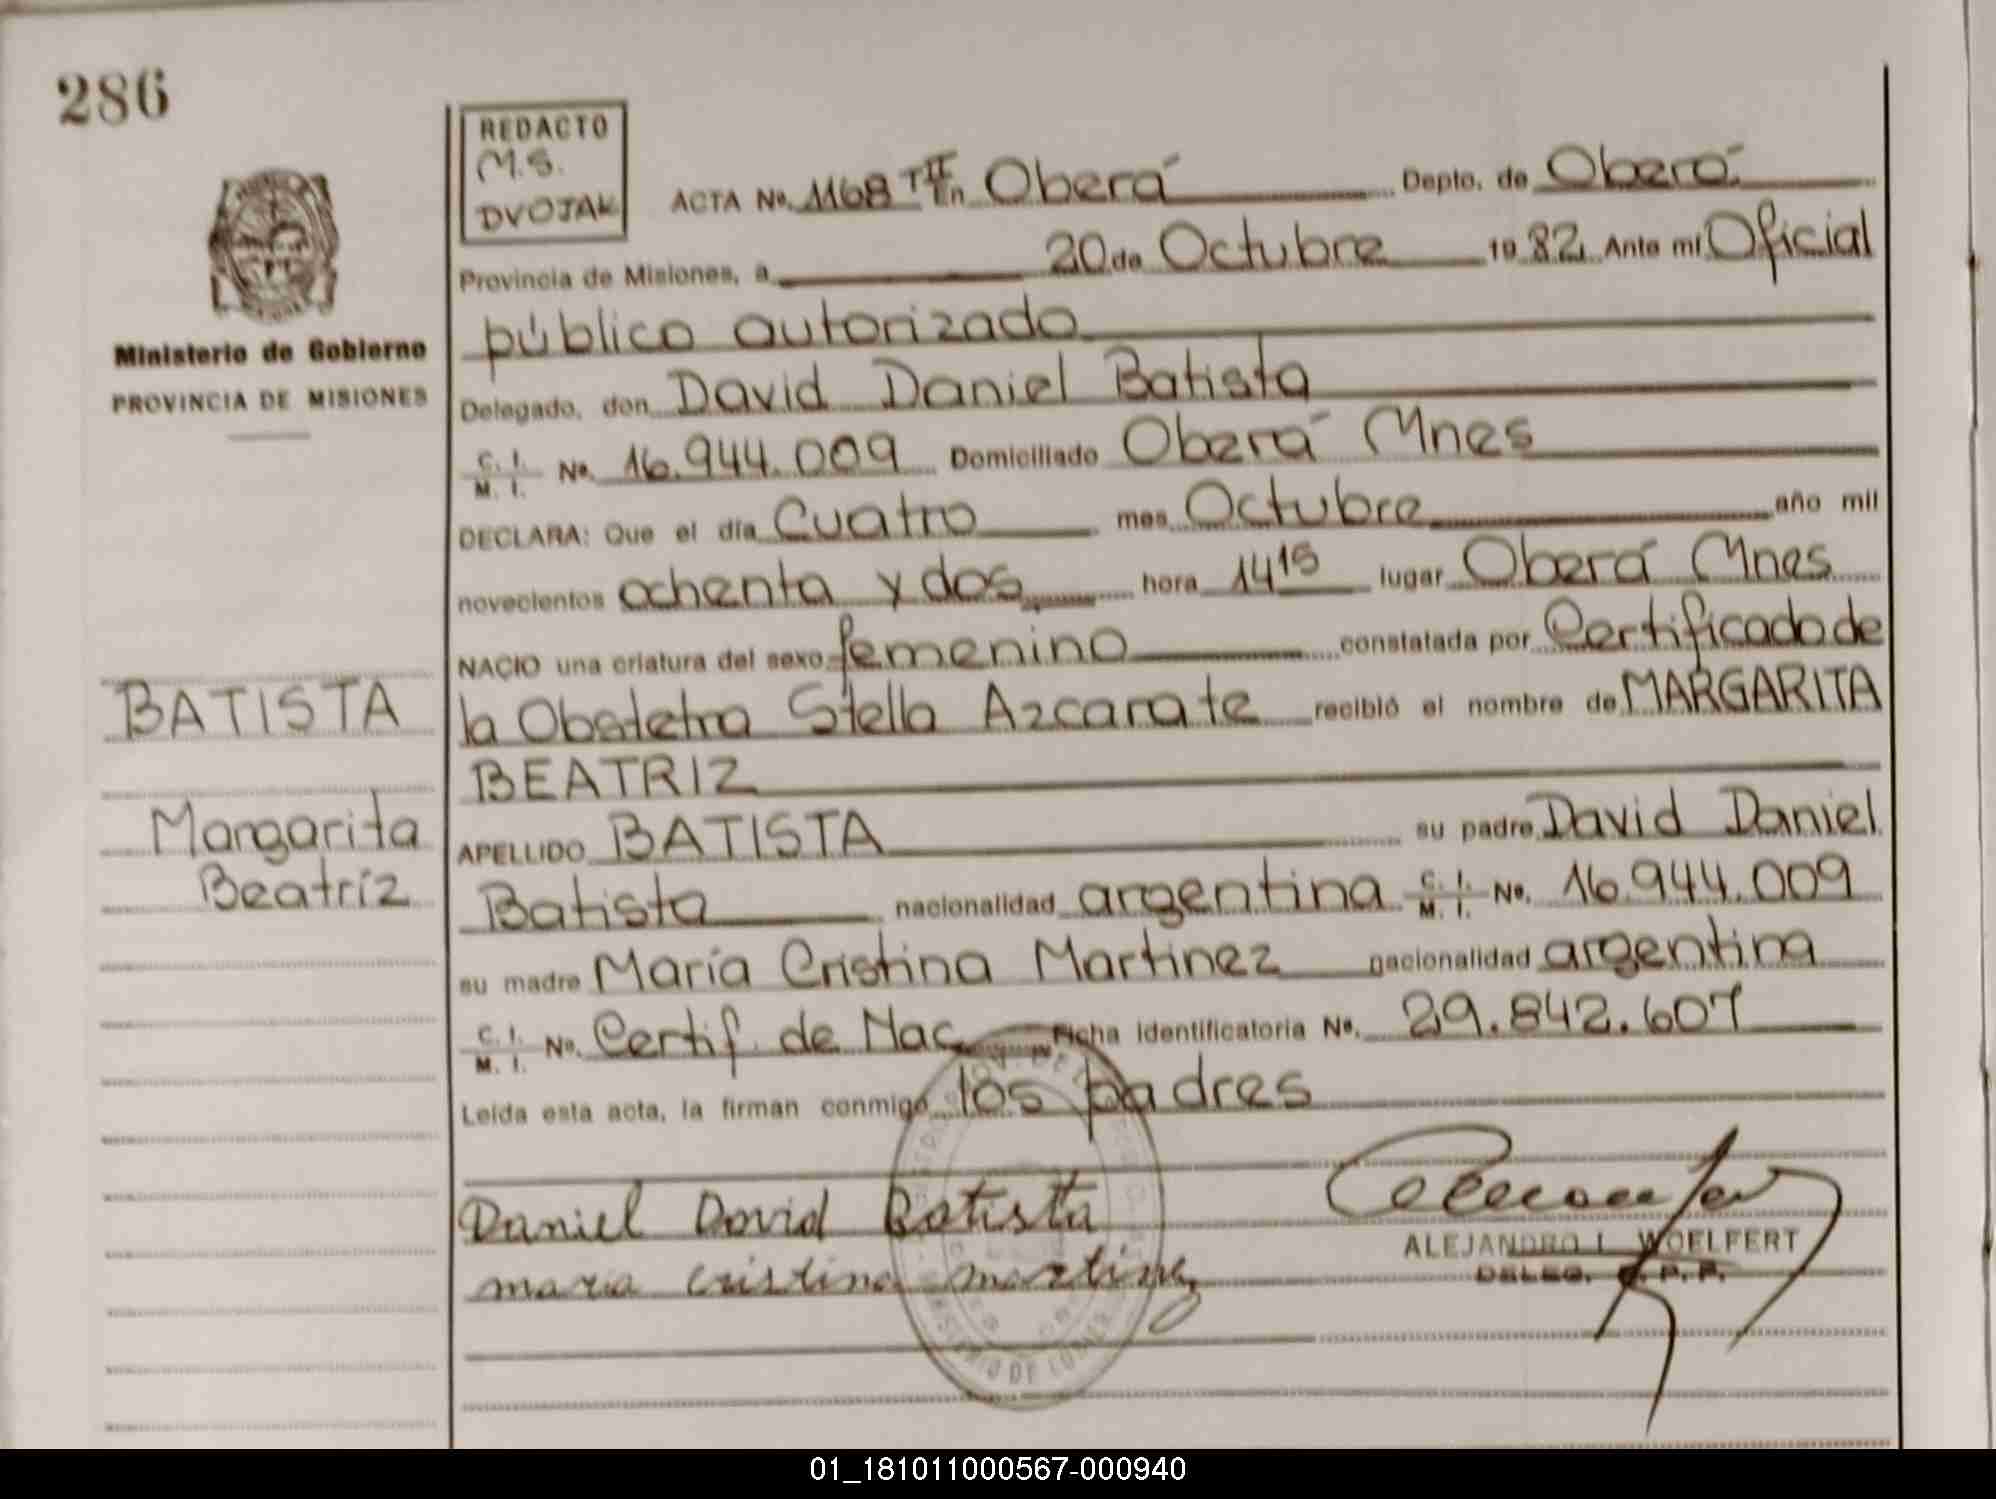 286
REDACTO
M.S.
DVOJAK
ACTA No. 1168 TII En Oberá Depto. de Oberá
Provincia de Misiones, a 20 de Octubre 1982 Ante mí Oficial
público autorizado
Delegado, don David Daniel Batista
C. I. M. I. No. 16.944.009 Domiciliado Oberá Mnes
DECLARA: Que el día Cuatro mes Octubre año mil
novecientos ochenta y dos hora 14 15 lugar Oberá Mnes
NACIO una criatura del sexo femenino constatada por Certificado de
la Obstetra Stella Azcarate recibió el nombre de MARGARITA
BEATRIZ
APELLIDO BATISTA su padre David Daniel
Batista nacionalidad argentina C. I. M. I. No. 16.944.009
su madre María Cristina Martinez nacionalidad argentina
C. I. M. I. No. Certif. de Nac. Ficha identificatoria No. 29.842.607
Leída esta acta, la firman conmigo los padres
Daniel David Batista
maria cristina martinez
ALEJANDRO L. WOELFERT
DELEG. R. P. P.
Ministerio de Gobierno
PROVINCIA DE MISIONES
BATISTA
Margarita
Beatríz
01_181011000567-000940